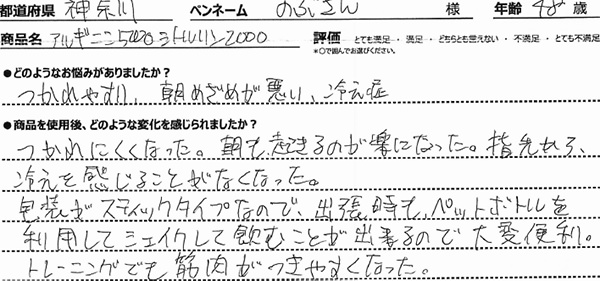 都道府県 神奈川 ペンネーム のぶさん 様 年齢 48 歳
商品名 アルギニン5000シトルリン2000 評価 とても満足 ・ 満足 ・ どちらとも言えない ・ 不満足 ・ とても不満足
*○で囲んでお選びください。
●どのようなお悩みがありましたか？
つかれやすい、朝めざめが悪い、冷え症
●商品を使用後、どのような変化を感じられましたか？
つかれにくくなった。朝も起きるのが楽になった。指先も、
冷えを感じることがなくなった。
包装がスティックタイプなので、出張時も、ペットボトルを
利用してシェイクして飲むことが出来るので大変便利。
トレーニングでも筋肉がつきやすくなった。